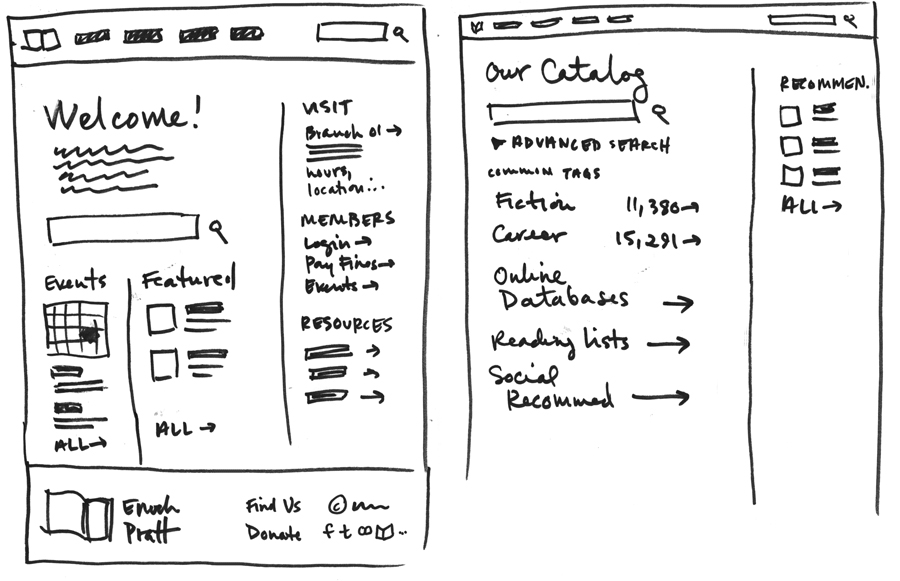 Welcome!
Events
ALL→
Featured
ALL →
VISIT
Branch 01 →
hours,
location...
MEMBERS
Login →
Pay Fines→
Events →
RESOURCES
Enoch
Pratt
Find Us ©
Donate f t
Our Catalog
▶ ADVANCED SEARCH
COMMON TAGS
Fiction 11,380→
Career 15,291→
Online
Databases →
Reading Lists →
Social
Recommed →
RECOMMEN.
ALL→